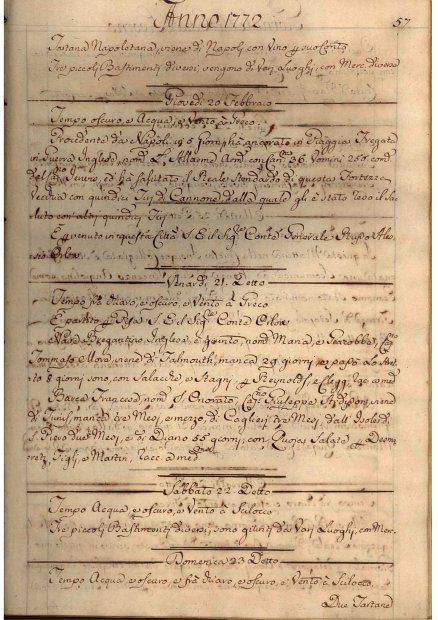 Anno 1772
57
Tartana Napoletana, viene di Napoli, con Vino per suo Conto
Tre piccoli Bastimenti diversi, vengono da Varj Luoghi, con Merc. diverse
Giovedì 20 Febbraio
Tempo oscuro, e Acqua, e Vento à Greco
Procedente da Napoli in 5 giorni hà ancorato in Piaggia Fregata
in Guerra Inglese, nom. L'Allarme Arm. con Can. 36 Uomini 250 com.
del Jervis, ed hà salutato il Reale Stendardo di questa Fortezza
Vecchia con quindici Tiri di Cannone, dalla quale gli è stato reso il Sa=
luto con altri quindici Tiri
È venuto in questa Città S. E. il Sig. Conte Generale
Orlow
Venerdì 21. Detto
Tempo frà chiaro, e oscuro, e Vento à Greco
È partito per Pisa S. E. il Sig. Conte Orlow
Nave Inglese, è giunto, nom.
Tommaso viene di Falmouth, manca 29 giorni, e passò lo Stret=
to 8 giorni sono, con Salacche, e Stagni per Reynolds, e
Barca Francese, nom. S. Onorato, Cap. Giuseppe viene
di Tunis, manca tre Mesi, e mezzo, di Caglieri tre Mesi, dall' Isola di
S. Piero due Mesi, e di Diano 55 giorni, con Quoja Salate per
Figli, e Martin, Racc. a med.
Sabbato 22 Detto
Tempo Acqua, e oscuro, e Vento à Scilocco
Tre piccoli Bastimenti diversi, sono giunti da Varj Luoghi, con Mer.
Domenica 23 Detto
Tempo Acqua, e oscuro, e frà chiaro, e oscuro, e Vento à Scilocco
Due Tartane